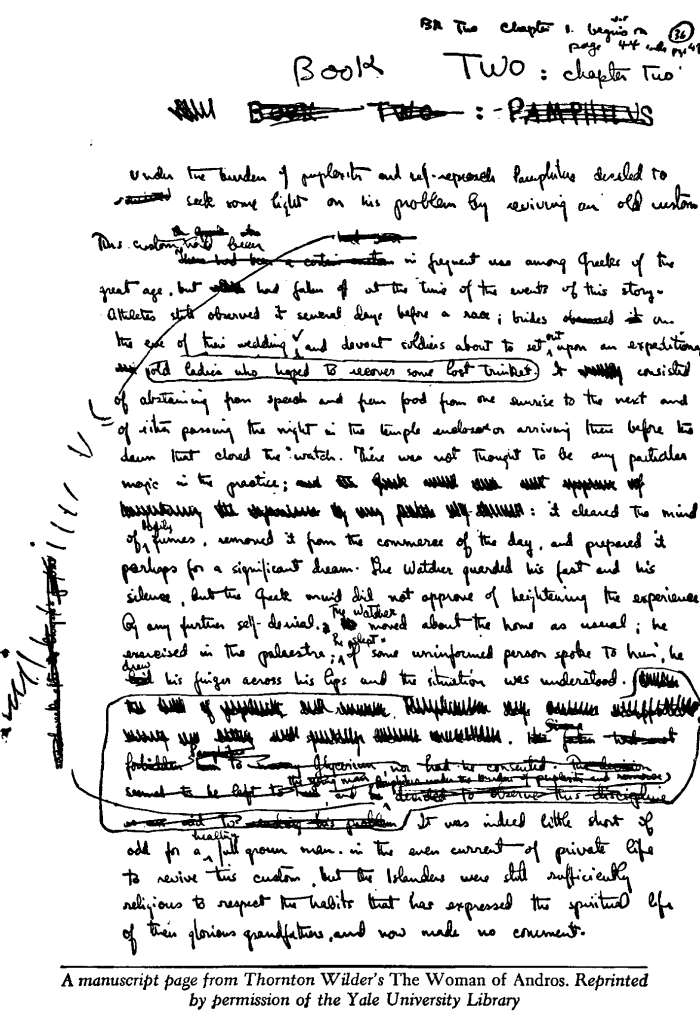 BK Two Chapter 1. begins on
page 44
36
BOOK TWO: chapter Two
BOOK TWO : PAMPHILUS
Under the burden of perplexity and self-reproach Pamphilus decided to
seek some light on his problem by reviving an old custom
This custom had been
there had been a certain custom in frequent use among Greeks of the
great age, but had fallen off at the time of the events of this story.
Athletes still observed it several days before a race; brides observed it on
the eve of their wedding and devout soldiers about to set out upon an expedition
old ladies who hoped to recover some lost trinket. It consisted
of abstaining from speech and from food from one sunrise to the next and
of either passing the night in the temple enclosure or arriving there before the
dawn that closed the watch. There was not thought to be any particular
magic in the practice; and the Greek mind did not approve of
: it cleared the mind
of fumes, removed it from the commerce of the day, and prepared it
perhaps for a significant dream. The Watcher guarded his fast and his
silence, but the Greek mind did not approve of heightening the experience
by any further self-denial. The Watcher moved about the home as usual; he
exercised in the palaestra; he slept. If some uninformed person spoke to him, he
drew his finger across his lips and the situation was understood.
His father had not
forbidden him to marry Glycerium nor had he consented. The decision
seemed to be left to the young man, and he decided to observe this discipline
his problem It was indeed little short of
odd for a healthy full grown man in the even current of private life
to revive this custom, but the Islanders were still sufficiently
religious to respect the habits that has expressed the spiritual life
of their glorious grandfathers, and now made no comment.
A manuscript page from Thornton Wilder's The Woman of Andros. Reprinted
by permission of the Yale University Library